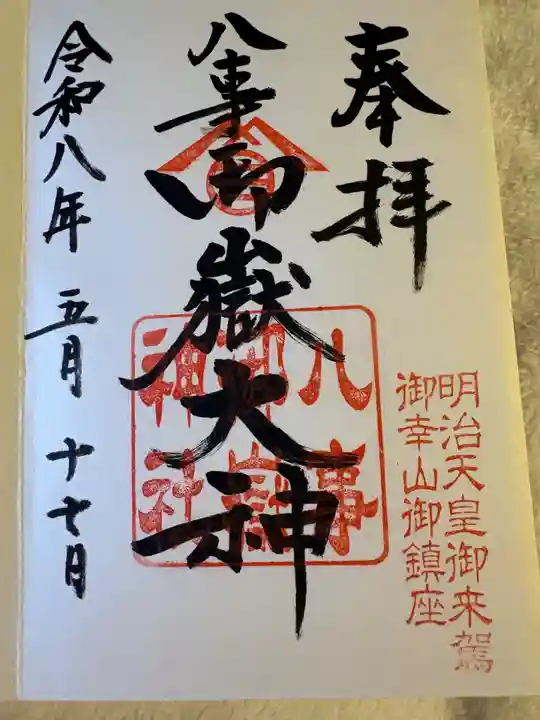 奉拝
明治天皇御来駕
御幸山御鎮座
八事御嶽大神
八事
御嶽
神社
令和八年 五月 十七日